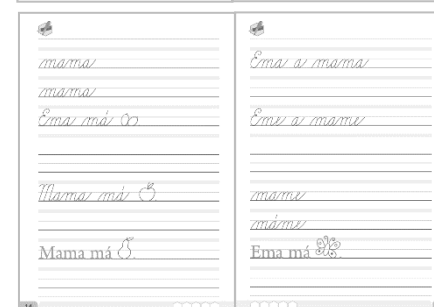 mama
mama
Ema má
Mama má
Mama má
Ema a mama
Eme a mame
mame
máme
Ema má